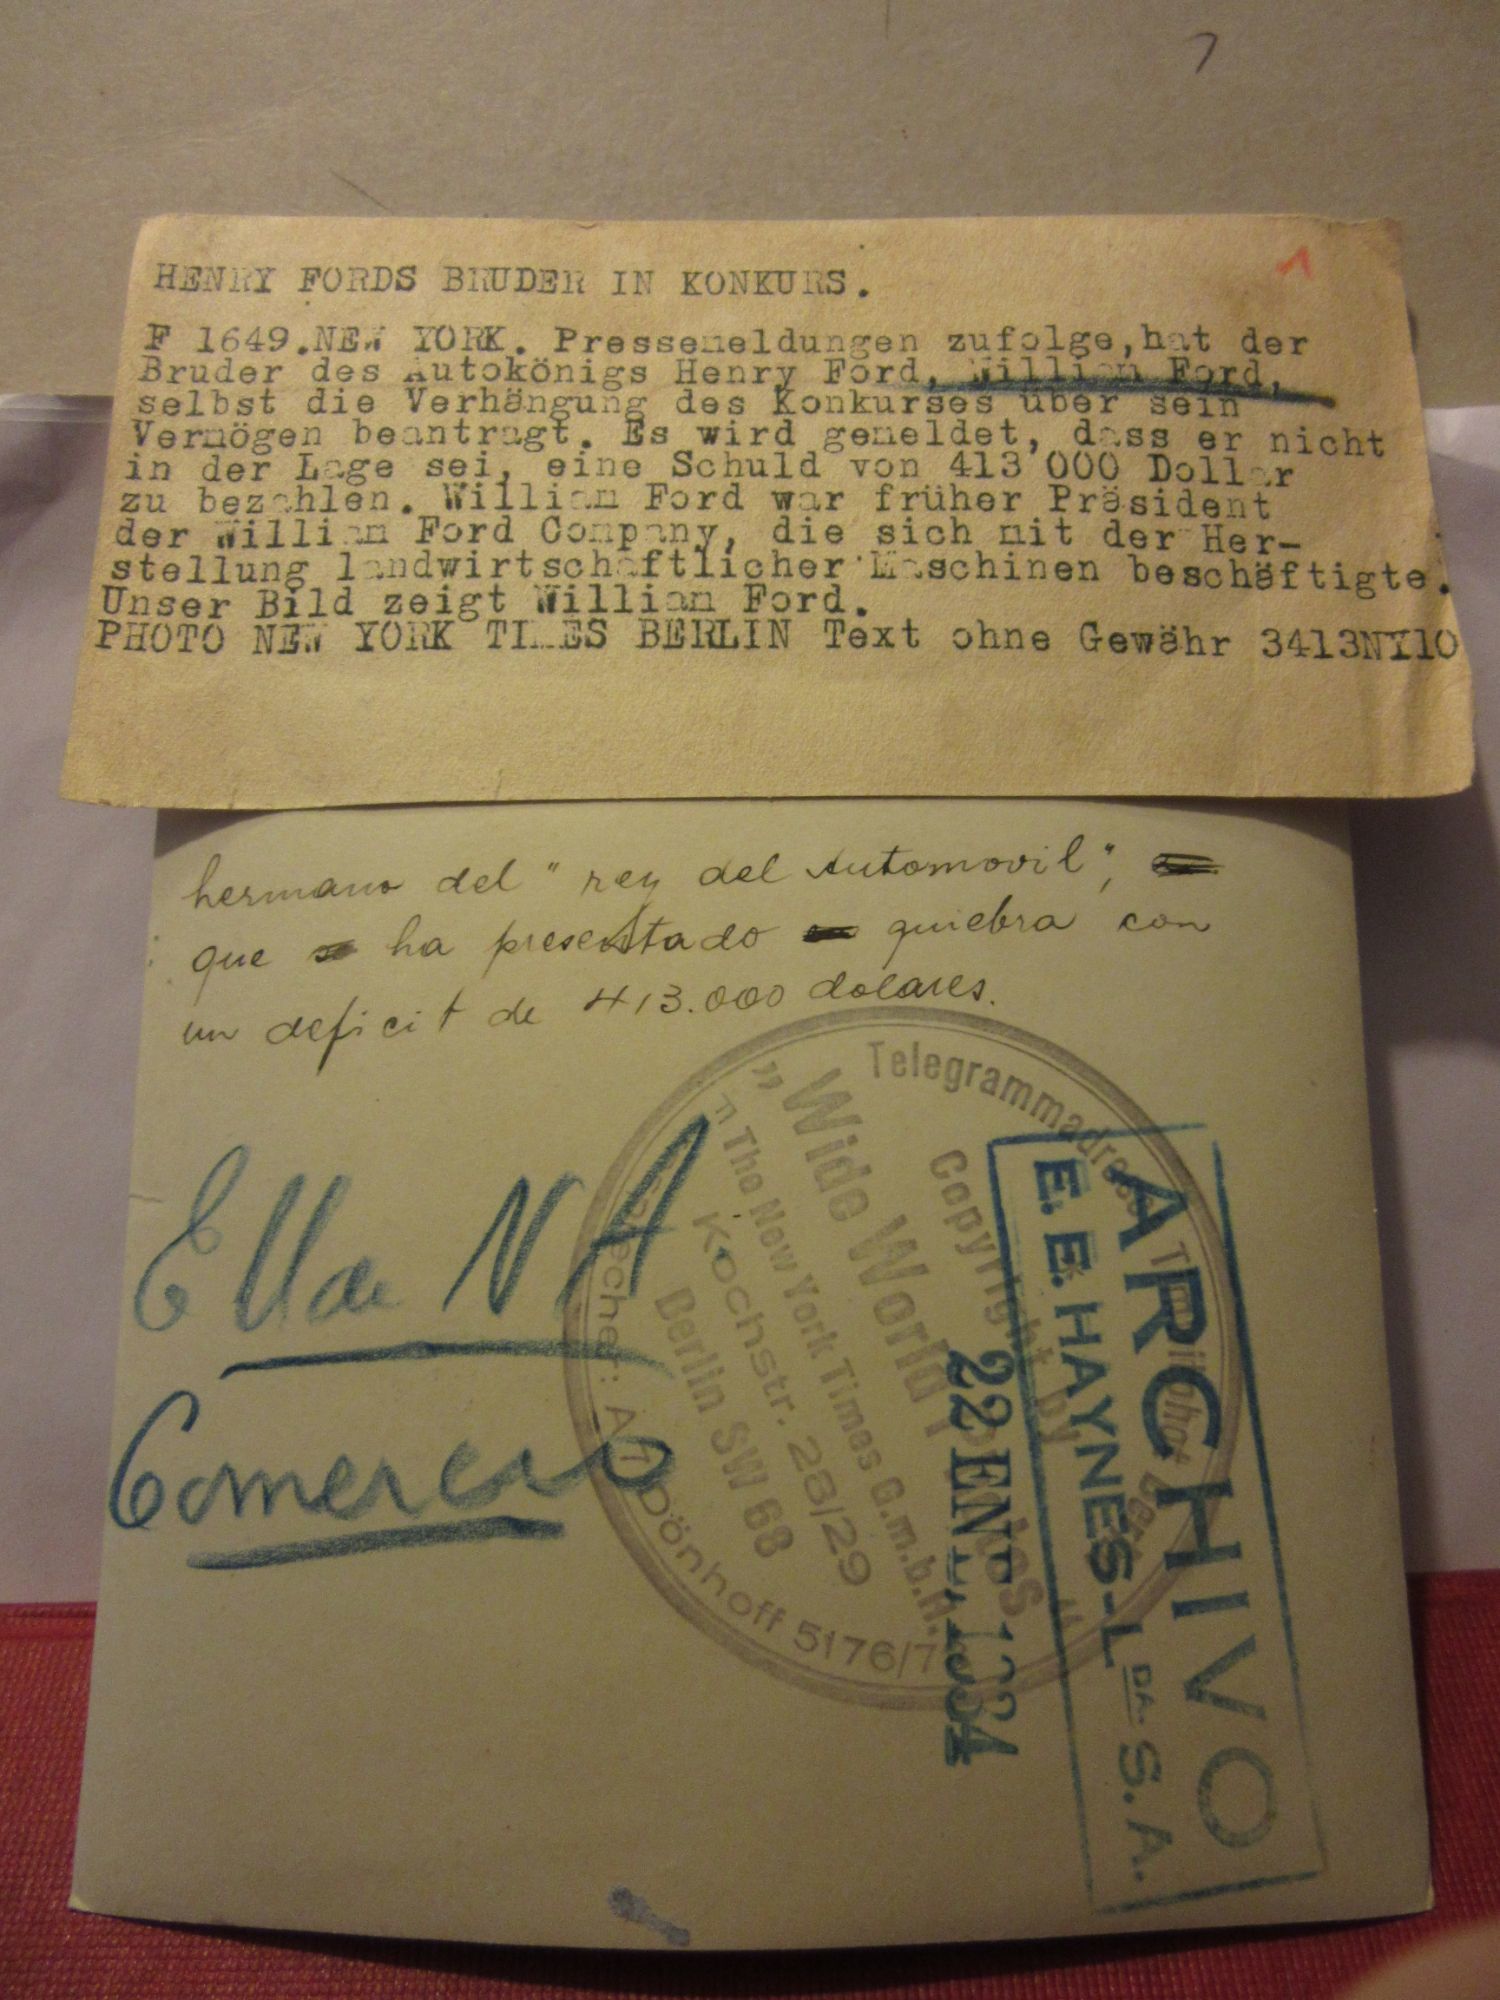 HENRY FORDS BRUDER IN KONKURS.
F 1649.NEW YORK. Pressemeldungen zufolge,hat der
Bruder des Autokönigs Henry Ford, William Ford,
selbst die Verhängung des Konkurses über sein
Vermögen beantragt. Es wird gemeldet, dass er nicht
in der Lage sei, eine Schuld von 413'000 Dollar
zu bezahlen. William Ford war früher Präsident
der William Ford Company, die sich mit der Her-
stellung landwirtschaftlicher Maschinen beschäftigte.
Unser Bild zeigt William Ford.
PHOTO NEW YORK TIMES BERLIN Text ohne Gewähr 3413NY10
hermano del "rey del Automovil",
que ha presentado quiebra con
un deficit de 413.000 dolares.
Telegrammadresse:
Copyright by
„Wide World Photos"
"The New York Times G.m.b.H.
Kochstr. 28/29
Berlin SW 68
Dönhoff 5176/7
ARCHIVO
E. E. HAYNES-LDA. S.A.
22 ENE. 1934
NA
Comercio